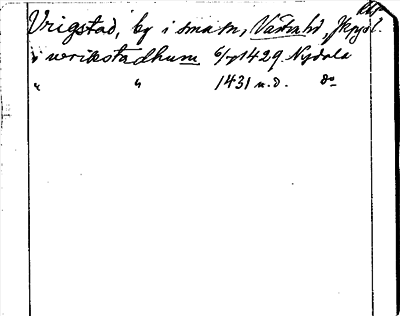 Vrigstad, by i sma sn, Västra hd, Jkpgs l.
i wrikstadhum 6/7 1429 Nydala
" " 1431 u.d. do